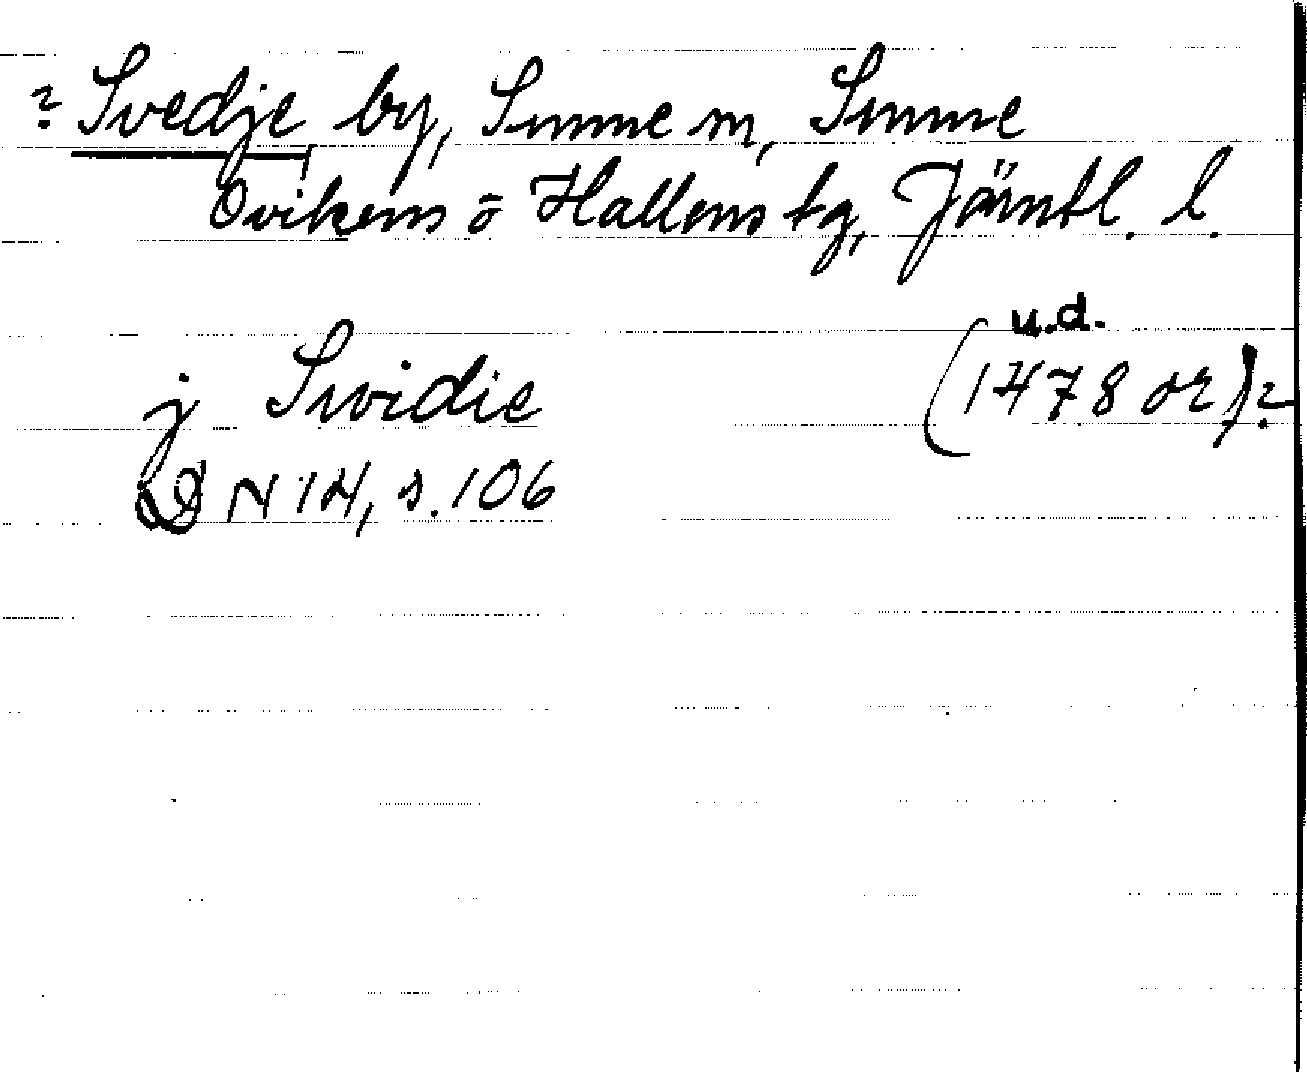 ? Svedje by, Sunne sn, Sunne
Ovikens o Hallens tg, Jämtl. l.
u.d.
j Swidie (1478 or)?
DN 14, s. 106